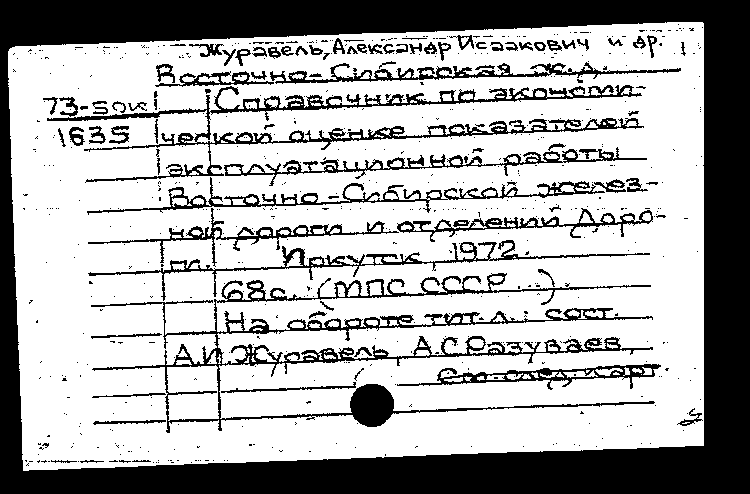 Журавель, Александр Исаакович и др. 1
Восточно-Сибирская ж.д.
73-50к Справочник по экономи-
1635 ческой оценке показателей
эксплуатационной работы
Восточно-Сибирской желез-
ной дороги и отделений Доро-
ги. Иркутск, 1972.
68с. (МПС СССР...).
На обороте тит.л.: сост.
А.И.Журавель, А.С.Разуваев,
См.след.карт.